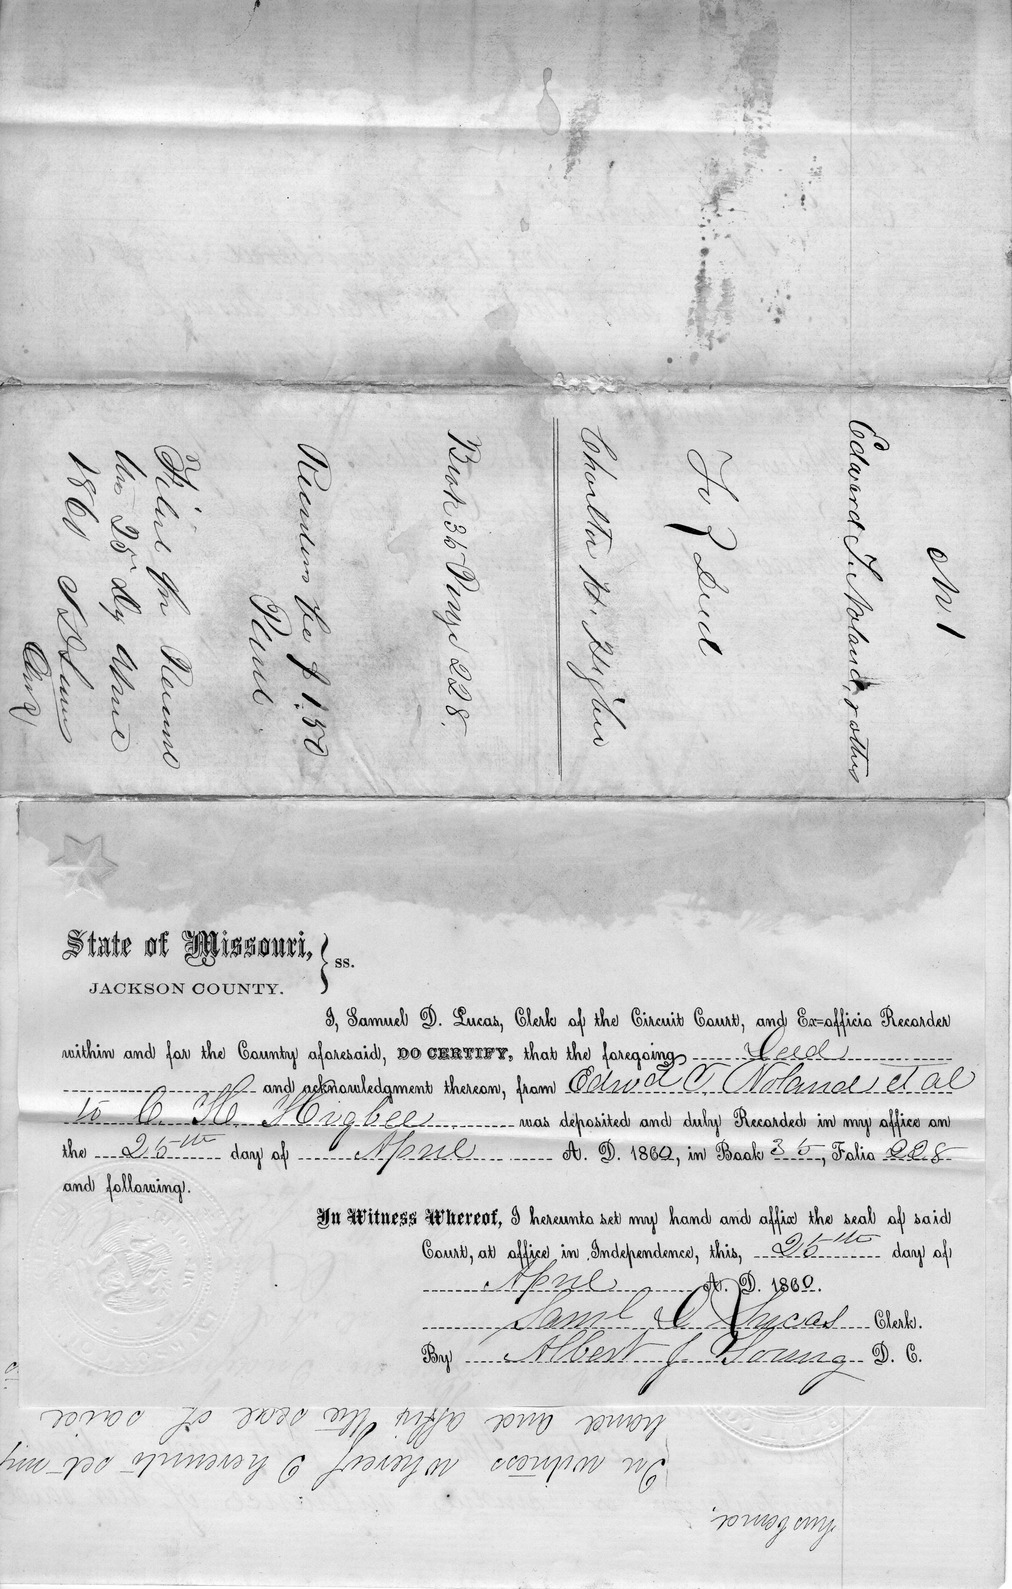 No. 1
Edward T. Noland, & others
To } Deed
Charles H. Higbee
Book 35 Page 228.
Recorders fee $1.50
Paid.
Filed for Record
this 25 day April
1860 S D Lucas
Clerk
State of Missouri, } ss.
JACKSON COUNTY.
I, Samuel D. Lucas, Clerk of the Circuit Court, and Ex=officio Recorder
within and for the County aforesaid, DO CERTIFY, that the foregoing Deed
and acknowledgment thereon, from Edwd T. Noland et al
to C. H. Higbee was deposited and duly Recorded in my office on
the 25th day of April A. D. 1860, in Book 35, Folio 228
and following.
In Witness Whereof, I hereunto set my hand and affix the seal of said
Court, at office in Independence, this, 25th day of
April A. D. 1860.
Saml D Lucas Clerk.
By Albert J. Young D. C.
husband,
In witness whereof I hereunto set my
hand and affix the seal of said